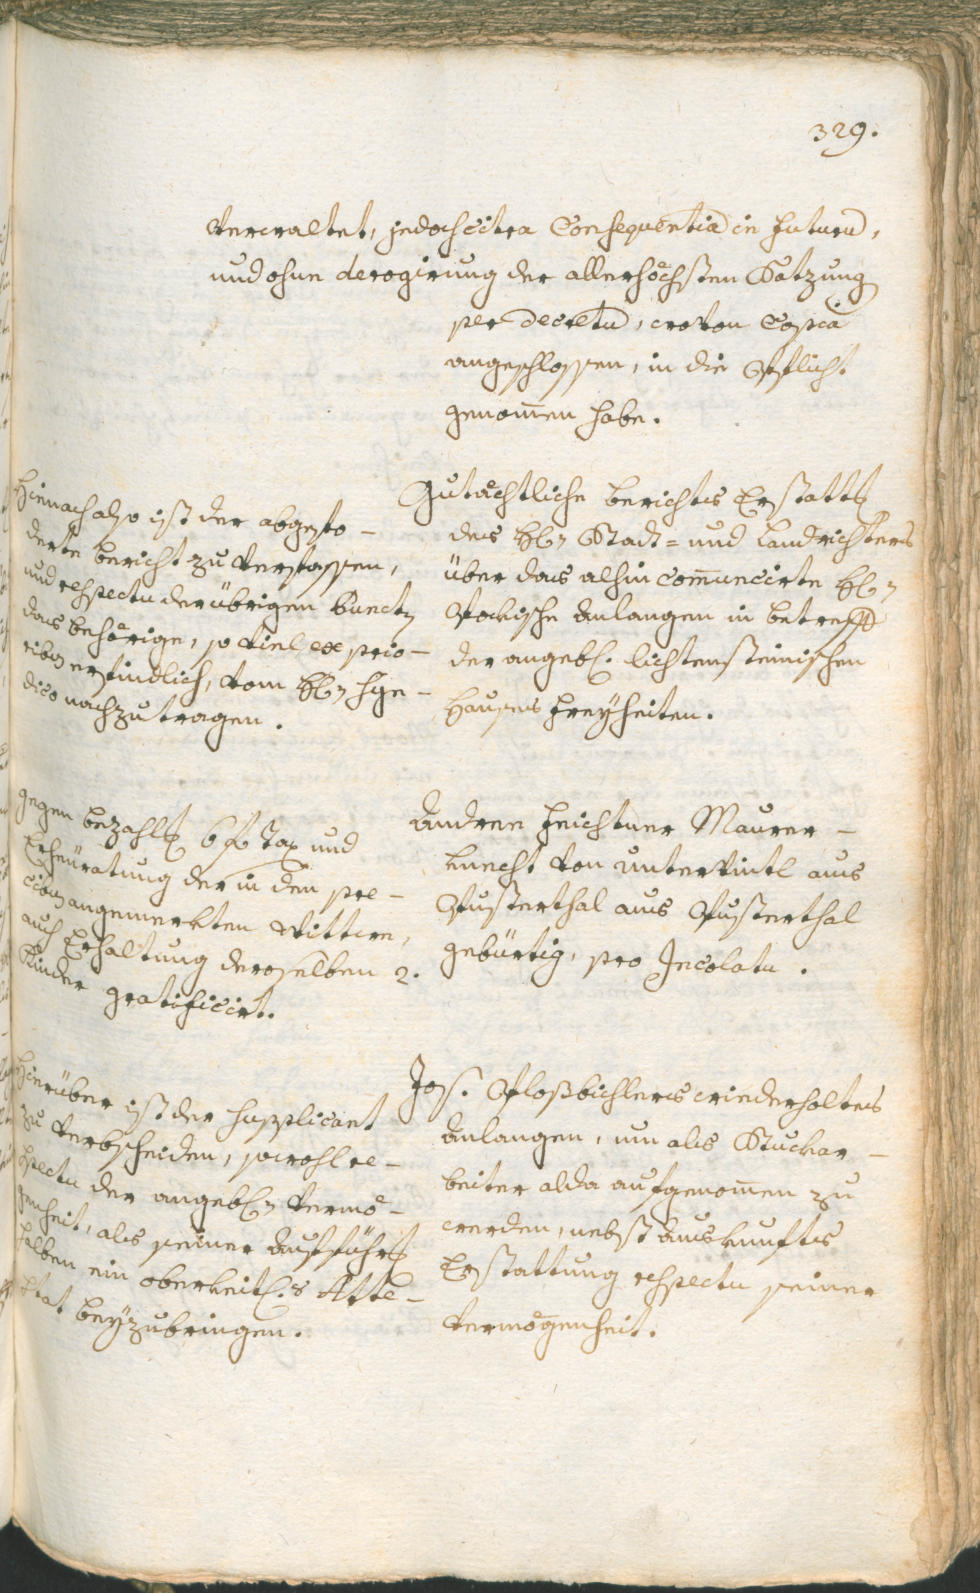 329.
verwaltet, jedoch citra Consequentiã in futurũ,
und ohne derogirung der allerhöchsten Satzung
per decretũ, wovon Copia
angeschlossen, in die Pflicht
genom̅en habe.
Hienach also ist der abgefo-
derte bericht zu verfassen,
und respectu der übrigen punctẽ
das behörige, so viel ex prio-
ribg erfindlich, vom Hl: Syn-
dico nachzutragen.
Gutächtliche berichts Erstattg
des Hl: Stadt- und Landrichters
über das alhin com̅unicirte Hl:
Pockische Anlangen in betreff
der angebl. lichtensteinischen
Hauses freyheiten.
gegen bezahlg 6 f Tax und
Erheüratung der in den pre-
cibg angemerkten Wittwe,
auch Erhaltung deroselben 2.
Kinder gratificirt.
Andree Feichtner Maurer-
knecht von untervintl aus
Pusterthal aus Pusterthal
gebürtig, pro Incolatu.
Hierüber ist der Supplicant
zu verbscheiden, sowohl re-
spectu der angebl: vermö-
genheit, als seiner Aufführg
halben ein oberkeitl.s Atte-
stat beyzubringen.
Jos. Ploßbichlers wiederholtes
Anlangen, um als Stuckar-
beiter alda aufgenom̅en zu
werden, nebst auskunfts
Erstattung respectu seiner
vermögenheit.